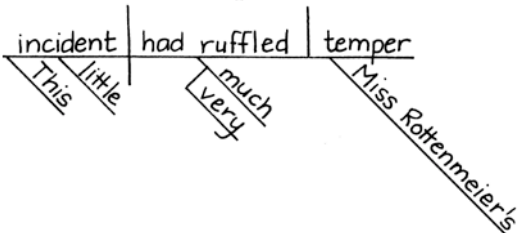 incident had ruffled temper
This little much Miss Rottenmeier's
very